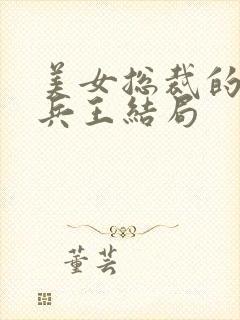 美女总裁的
兵王結局
董芸